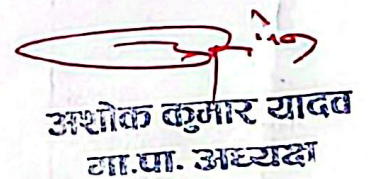 अशोक कुमार यादव
गा.पा. अध्यक्ष